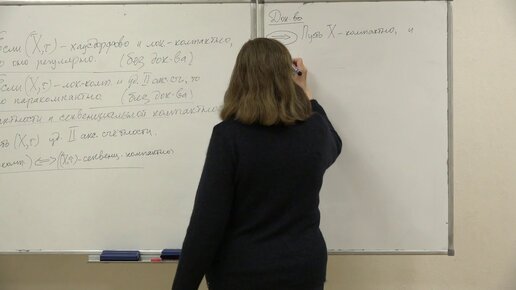 Если (X,τ) - хаусдорфово и лок.-компактно,
оно регулярно. (без док-ва)
Если (X,τ) - лок-комп. и уд. II акс. сч., то
паракомпактно (без док-ва)
и секвенциальной компактности
(X,τ) уд. II акс. счетности.
⟺ (X,τ) - секвенц. компактно
Док-во
⟹ Пусть X - компактно, и